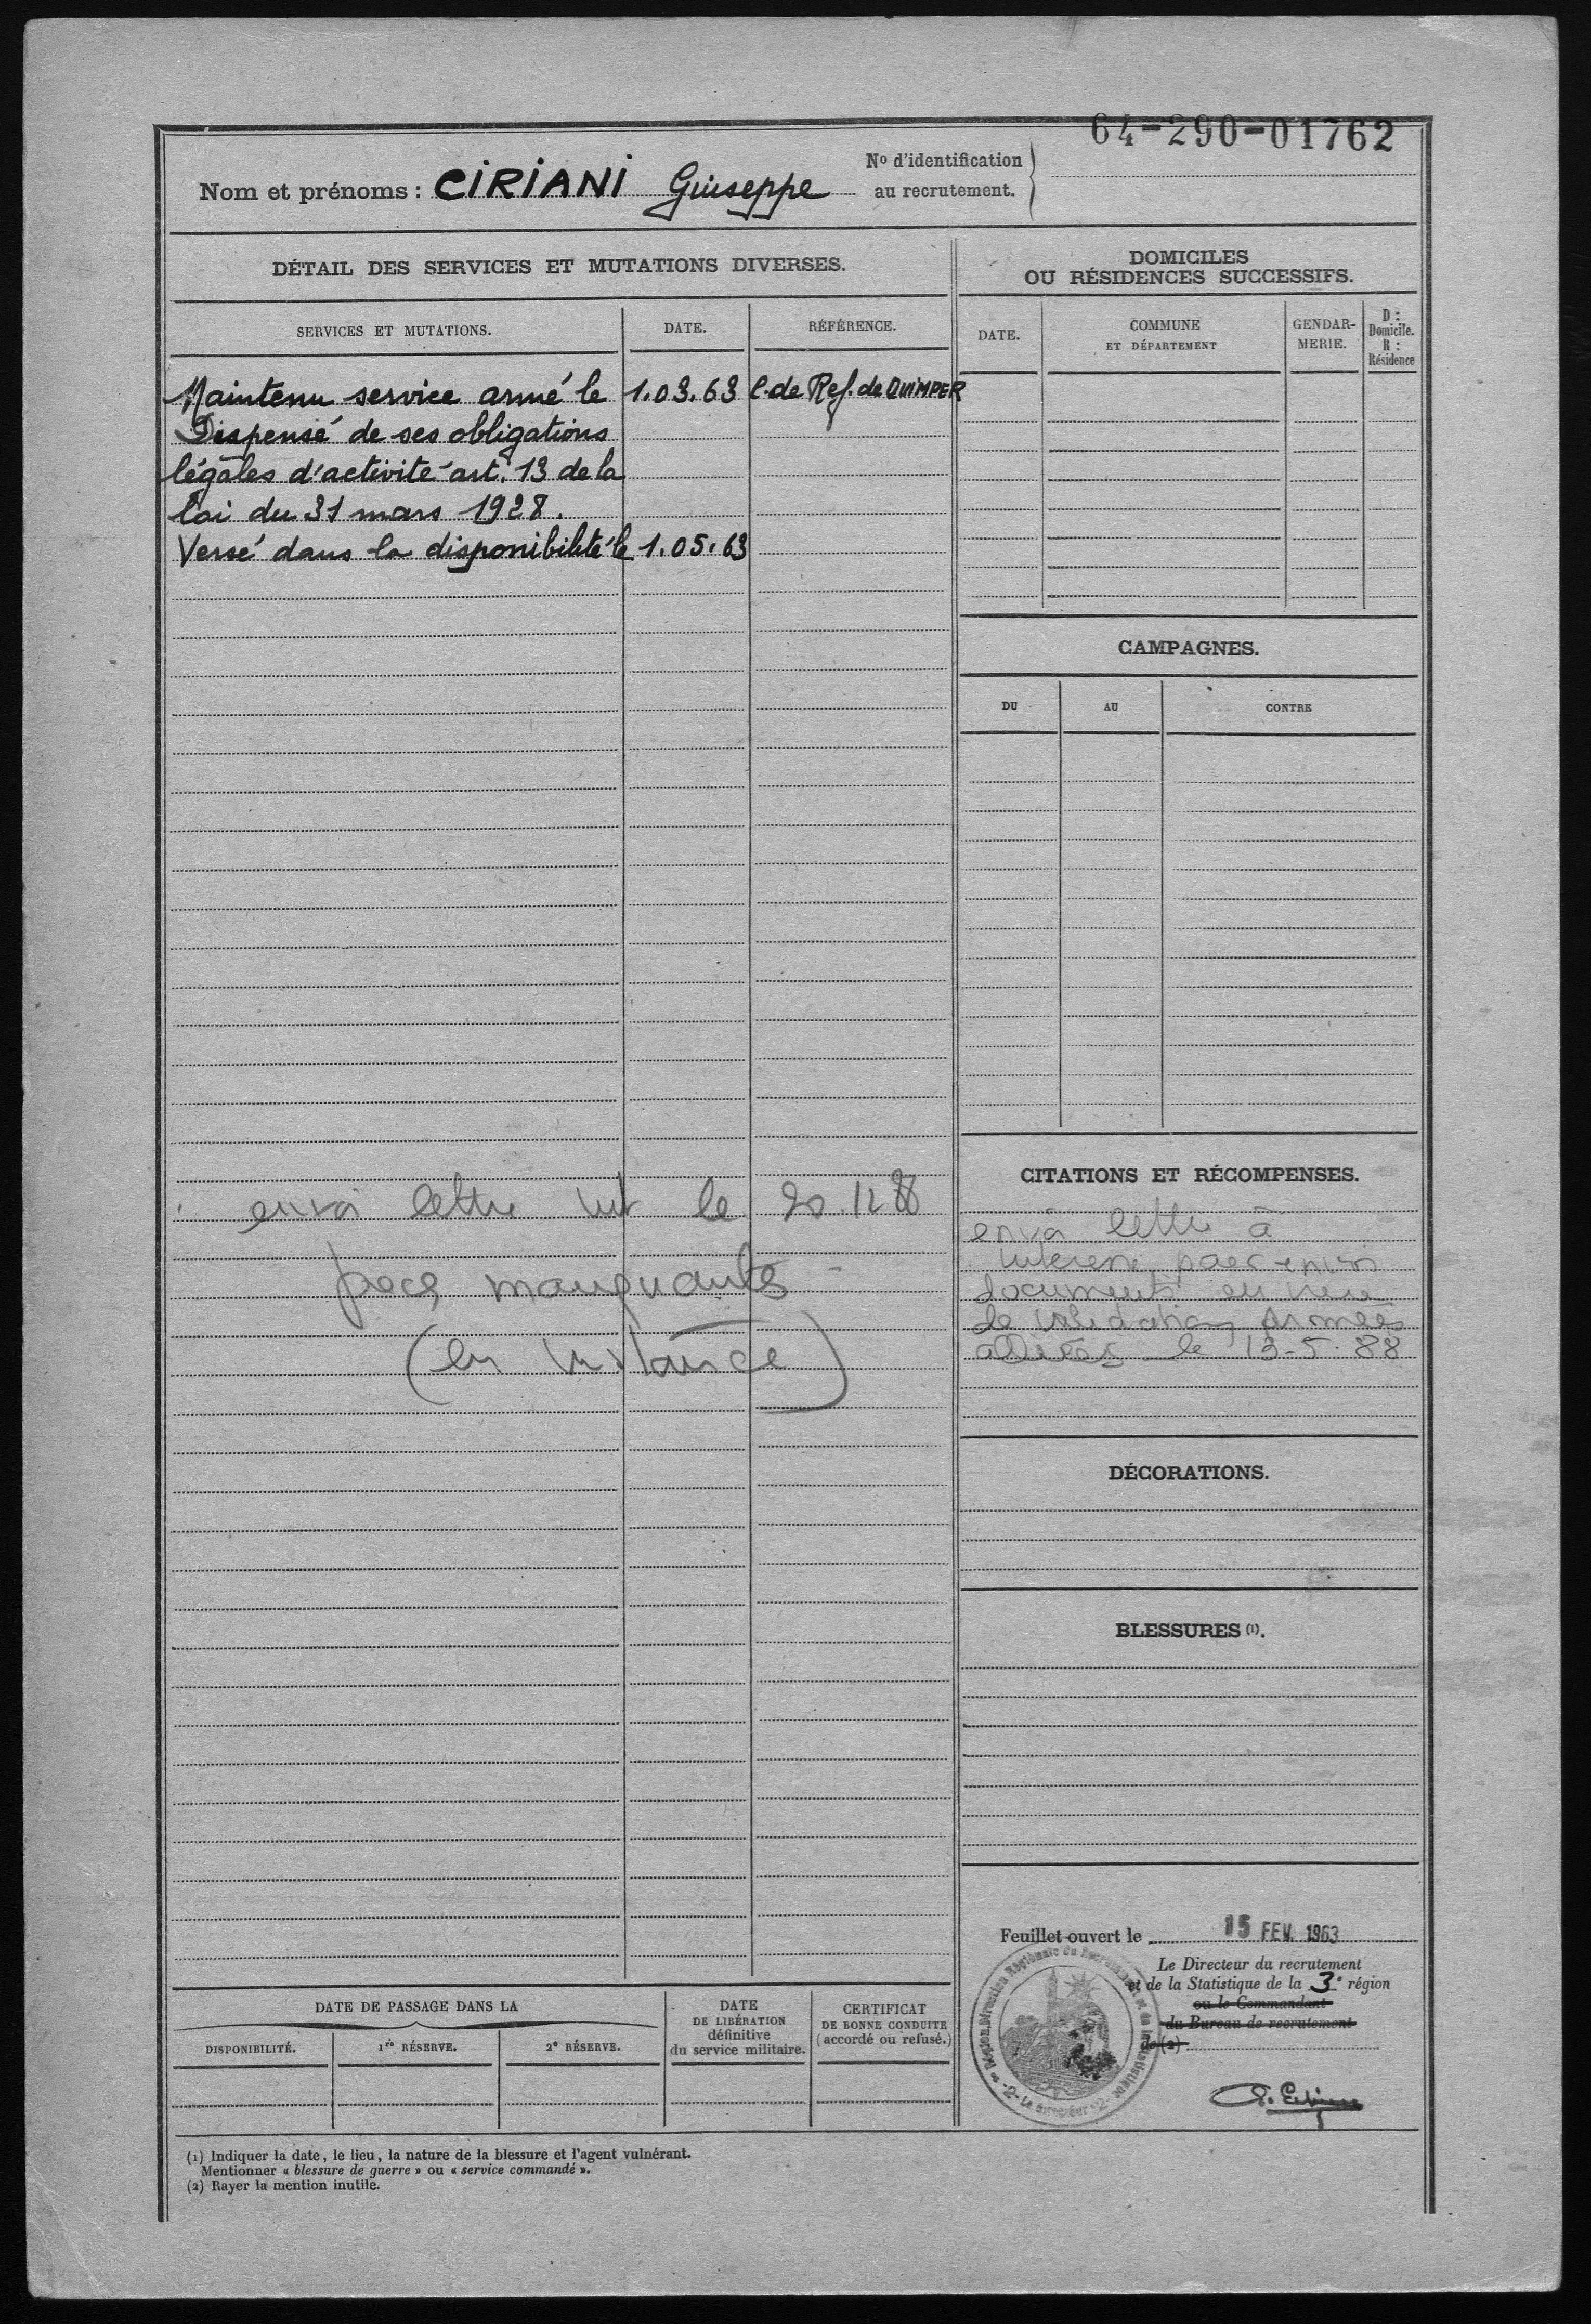 64-290-01762
Nom et prénoms : CIRIANI Giuseppe
Nº d'identification
au recrutement.
DÉTAIL DES SERVICES ET MUTATIONS DIVERSES.
SERVICES ET MUTATIONS.
DATE.
RÉFÉRENCE.
Maintenu service armé le 1.03.63 C.de Ref. de QUIMPER
Dispensé de ses obligations
légales d'activité art. 13 de la
loi du 31 mars 1928.
Versé dans la disponibilité le 1.05.63
envoi lettre int le 20.12 88
pièces manquantes
(en instance)
DOMICILES
OU RÉSIDENCES SUCCESSIFS.
DATE.
COMMUNE
ET DÉPARTEMENT
GENDAR-
MERIE.
D :
Domicile.
R :
Résidence
CAMPAGNES.
DU
AU
CONTRE
CITATIONS ET RÉCOMPENSES.
envoi lettre à
pour envoi
documents en vue
de validation Armées
alliées le 13-5-88
DÉCORATIONS.
BLESSURES (1).
Feuillet ouvert le 15 FEV. 1963
Le Directeur du recrutement
et de la Statistique de la 3e région
ou le Commandant
du Bureau de recrutement
de (2)
DATE DE PASSAGE DANS LA
DISPONIBILITÉ.
1re RÉSERVE.
2e RÉSERVE.
DATE
DE LIBÉRATION
définitive
du service militaire.
CERTIFICAT
DE BONNE CONDUITE
(accordé ou refusé.)
(1) Indiquer la date, le lieu, la nature de la blessure et l'agent vulnérant.
Mentionner « blessure de guerre » ou « service commandé ».
(2) Rayer la mention inutile.